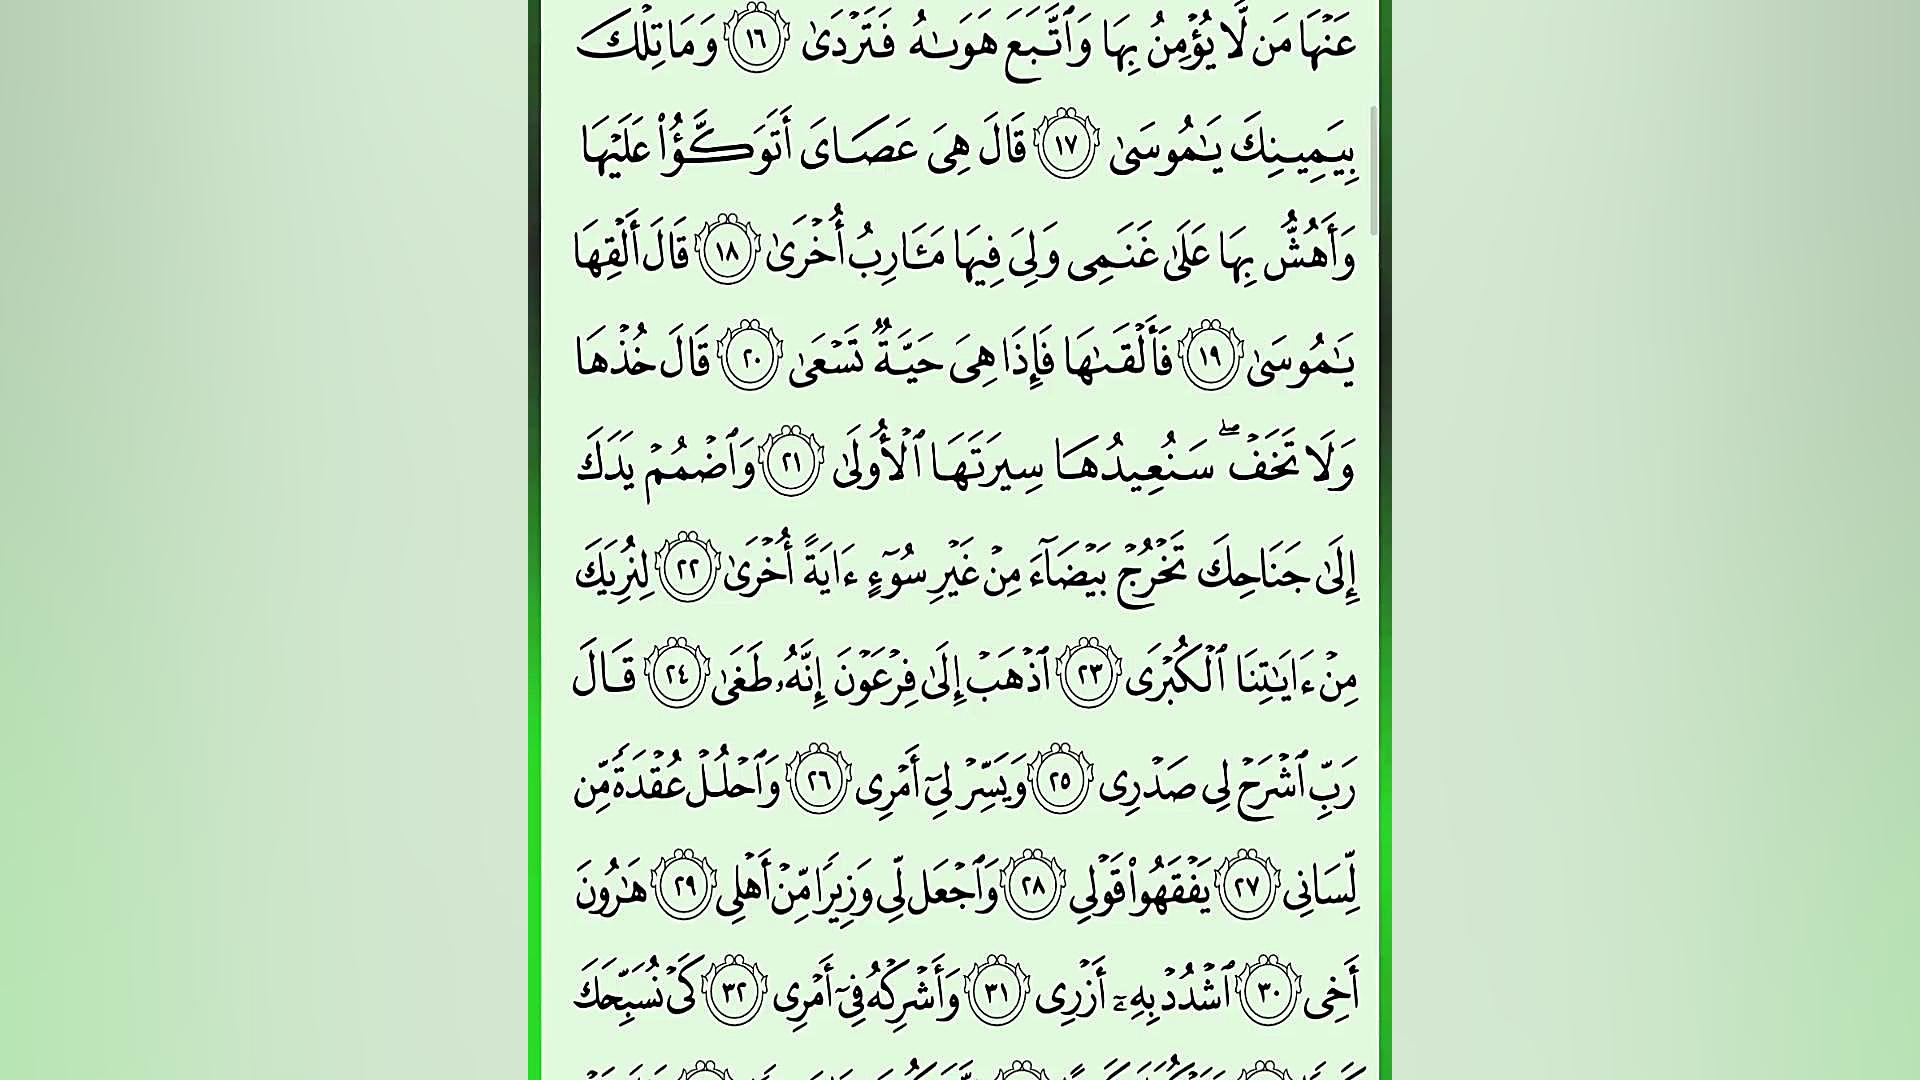 عَنۡهَا مَن لَّا يُؤۡمِنُ بِهَا وَٱتَّبَعَ هَوَىٰهُ فَتَرۡدَىٰ ١٦ وَمَا تِلۡكَ
بِيَمِينِكَ يَٰمُوسَىٰ ١٧ قَالَ هِيَ عَصَايَ أَتَوَكَّؤُاْ عَلَيۡهَا
وَأَهُشُّ بِهَا عَلَىٰ غَنَمِي وَلِيَ فِيهَا مَـَٔارِبُ أُخۡرَىٰ ١٨ قَالَ أَلۡقِهَا
يَٰمُوسَىٰ ١٩ فَأَلۡقَىٰهَا فَإِذَا هِيَ حَيَّةٞ تَسۡعَىٰ ٢٠ قَالَ خُذۡهَا
وَلَا تَخَفۡۖ سَنُعِيدُهَا سِيرَتَهَا ٱلۡأُولَىٰ ٢١ وَٱضۡمُمۡ يَدَكَ
إِلَىٰ جَنَاحِكَ تَخۡرُجۡ بَيۡضَآءَ مِنۡ غَيۡرِ سُوٓءٍ ءَايَةً أُخۡرَىٰ ٢٢ لِنُرِيَكَ
مِنۡ ءَايَٰتِنَا ٱلۡكُبۡرَى ٢٣ ٱذۡهَبۡ إِلَىٰ فِرۡعَوۡنَ إِنَّهُۥ طَغَىٰ ٢٤ قَالَ
رَبِّ ٱشۡرَحۡ لِي صَدۡرِي ٢٥ وَيَسِّرۡ لِيٓ أَمۡرِي ٢٦ وَٱحۡلُلۡ عُقۡدَةٗ مِّن
لِّسَانِي ٢٧ يَفۡقَهُواْ قَوۡلِي ٢٨ وَٱجۡعَل لِّي وَزِيرٗا مِّنۡ أَهۡلِي ٢٩ هَٰرُونَ
أَخِي ٣٠ ٱشۡدُدۡ بِهِۦٓ أَزۡرِي ٣١ وَأَشۡرِكۡهُ فِيٓ أَمۡرِي ٣٢ كَيۡ نُسَبِّحَكَ